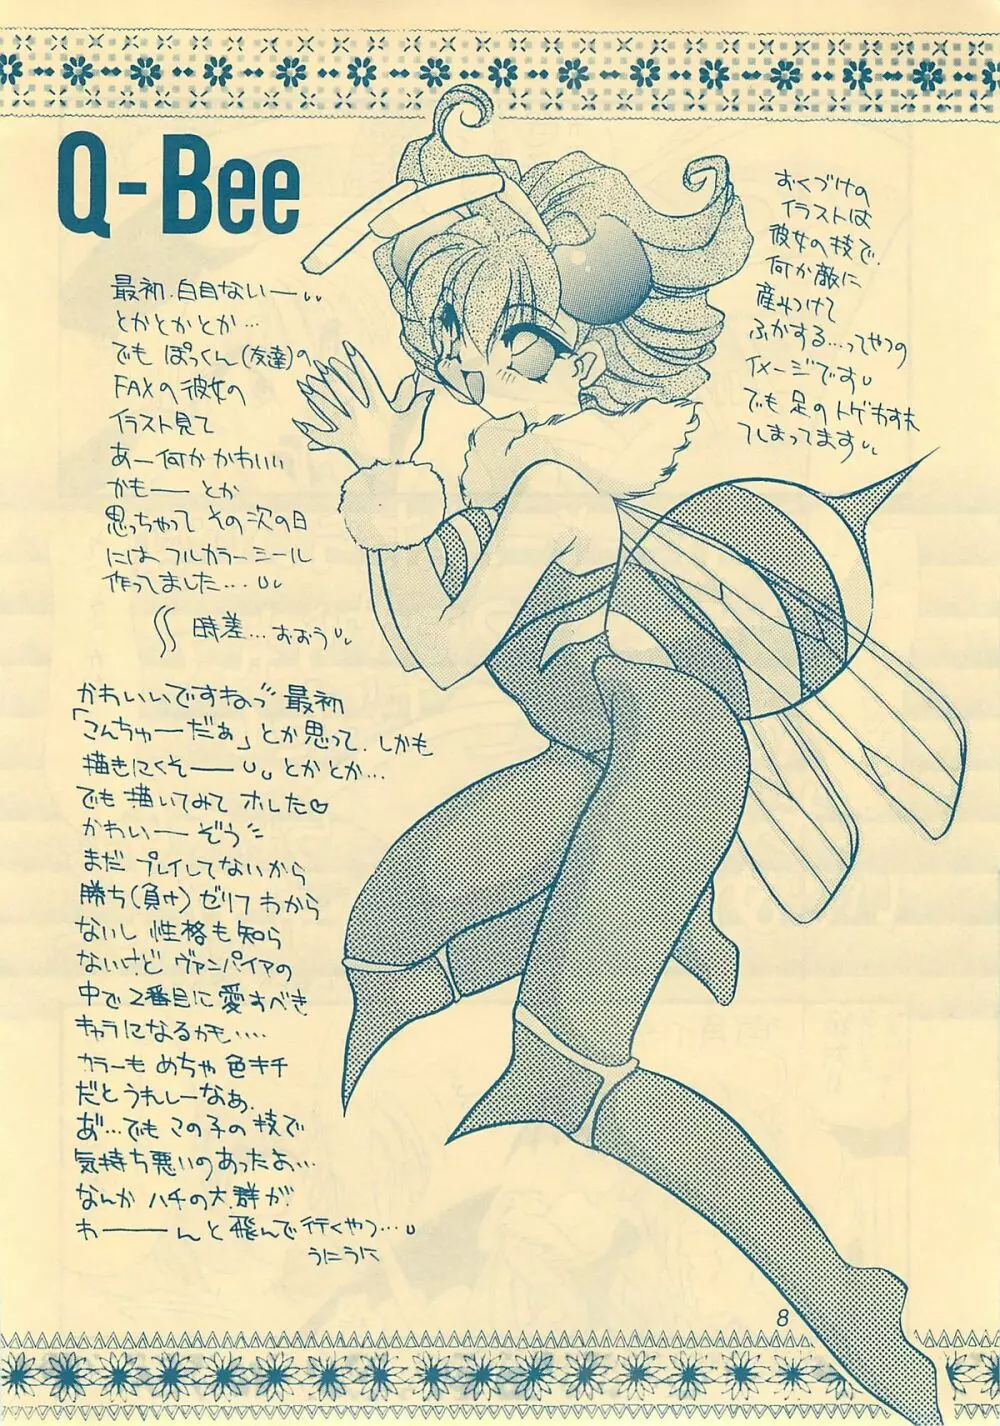 Q-Bee
最初、白目ないー…
とかとかとか…
でも ぽっくん(友達)の
FAXの彼女の
イラスト見て
あー何か かわいい
かもー とか
思っちゃって その次の日
には フルカラーシール
作ってました…
時差…おおう
かわいいですねっ 最初
「こんちゅーだぁ」とか思って、しかも
描きにくそーー とかとか…
でも 描いてみて ホレた♡
かわいーぞう
まだ プレイしてないから
勝ち(負け)ゼリフ わから
ないし 性格も知ら
ないけど ヴァンパイアの
中で 2番目に愛すべき
キャラになるかも…
カラーも めちゃ 色キチ
だと うれしーなあ、
あ゛…でも この子の技で
気持ち悪いのあったよ…
なんか ハチの大群が
わーーんと 飛んで行くやつ…
うにうに
おくづけの
イラストは
彼女の技で、
何か敵に
産みつけて
ふかする…ってやつの
イメージです
でも 足のトゲわすれ
てしまってます
8